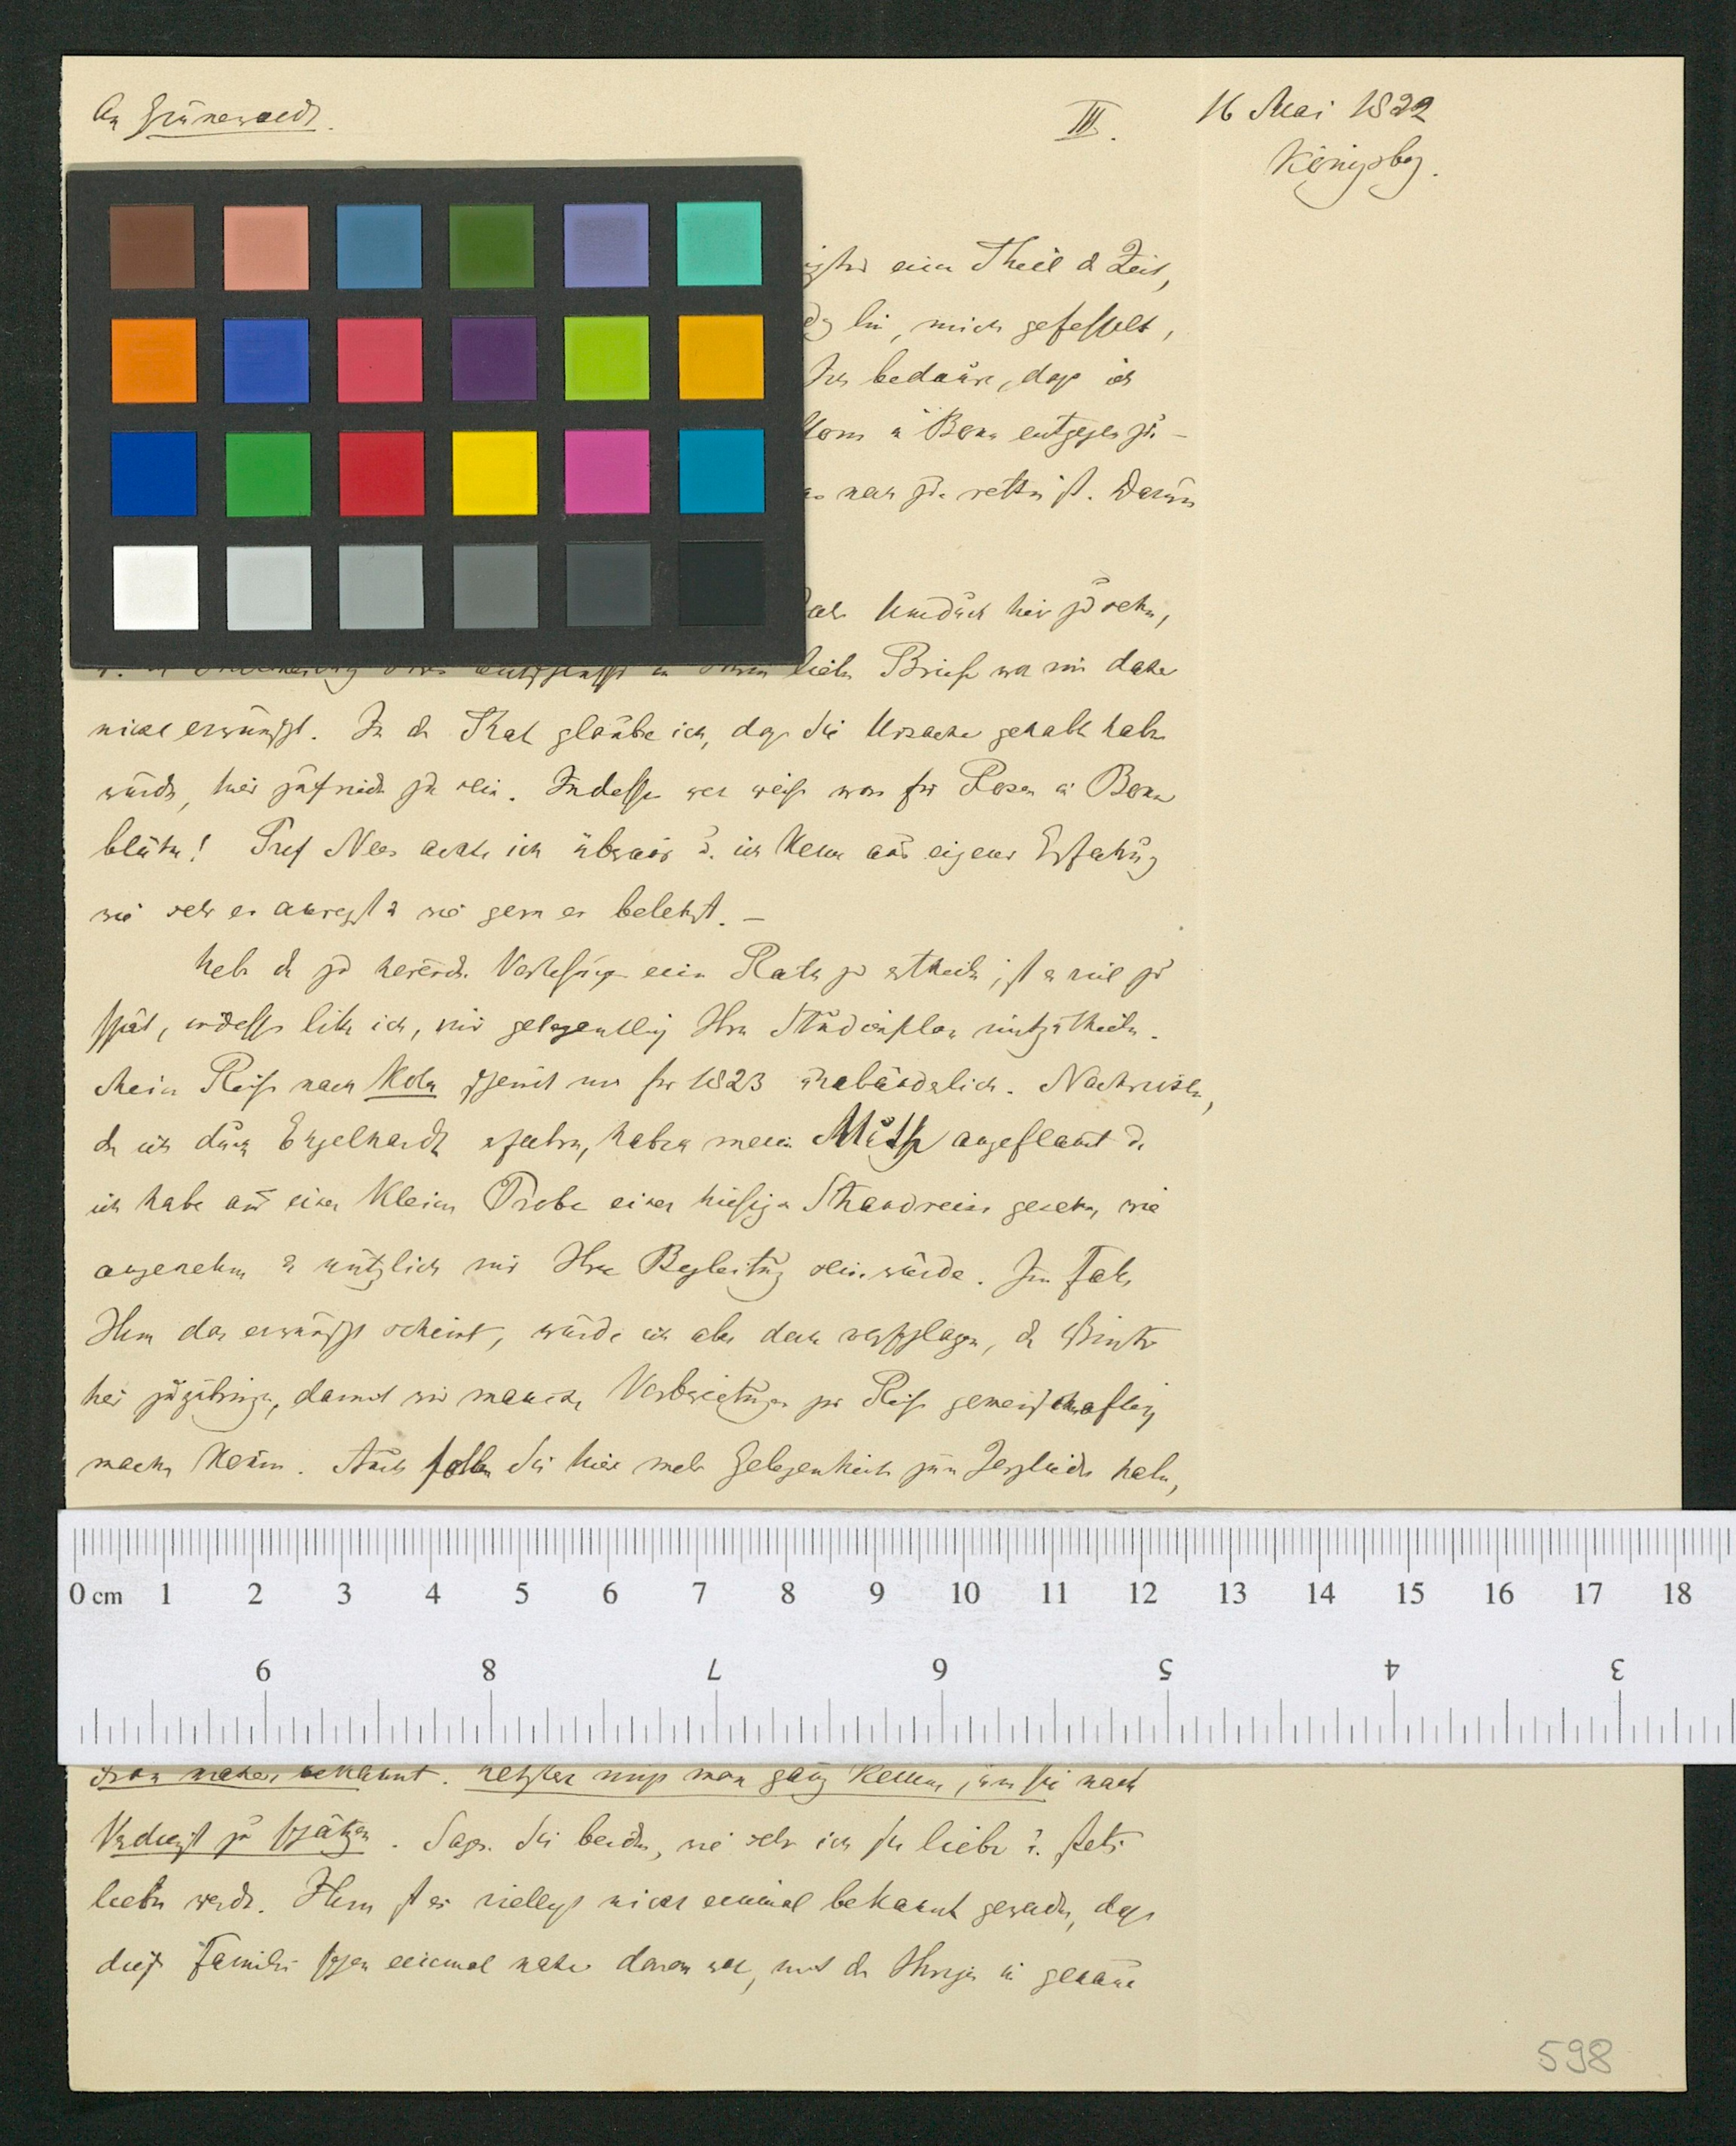 An Grünewaldt.
III.
16 Mai 1822
Königsbg.
einen Theil d Zeit,
bin, mich gefesselt,
Ich bedaure, daß ich
in Bonn entgegen zu-
noch zu retten ist. Darum
hier zu sehn,
lieben Briefe war mir daher
nicht erwünscht. In der That glaube ich, daß Sie Ursache gehabt haben
würden, hier zufrieden zu sein. Indessen wer weiß was für Rosen in Bonn
blühn! Prof Nees achte ich überaus u. ich kenne aus eigener Erfahrung
wie sehr er anregt u wie gern er belehrt. –
zu hörenden Vorlesungen einen Rath zu ertheilen, ist es viel zu
spät, indessen bitte ich, mir gelegentlich Ihren Studienplan mitzutheilen.
Meine Reise nach Kola scheint mir für 1823 unabänderlich. Nachrichten,
die ich durch Engelhardt erfahren, haben meinen Muth angeflammt u.
ich habe aus einer kleinen Probe einer hiesigen Strandreise gesehen, wie
angenehm u nützlich mir Ihre Begleitung sein würde. Im Falle
Ihnen das erwünscht scheint, würde ich aber doch vorschlagen, den Winter
hier zuzubringen, damit wir manche Vorbereitungen zur Reise gemeinschaftlich
machen können. Auch sollen Sie hier mehr Gelegenheit zum Zergliedern haben,
0 cm 1 2 3 4 5 6 7 8 9 10 11 12 13 14 15 16 17 18
9 8 7 6 5 4 3
näher bekannt. Letztere muß man ganz kennen, um sie nach
Verdienst zu schätzen. Sagen Sie beiden, wie sehr ich sie liebe u. stets
lieben werde. Ihnen ist es vielleicht nicht einmal bekannt geworden, daß
diese Familie schon einmal nahe daran war, mit der Ihrigen in genaue
598